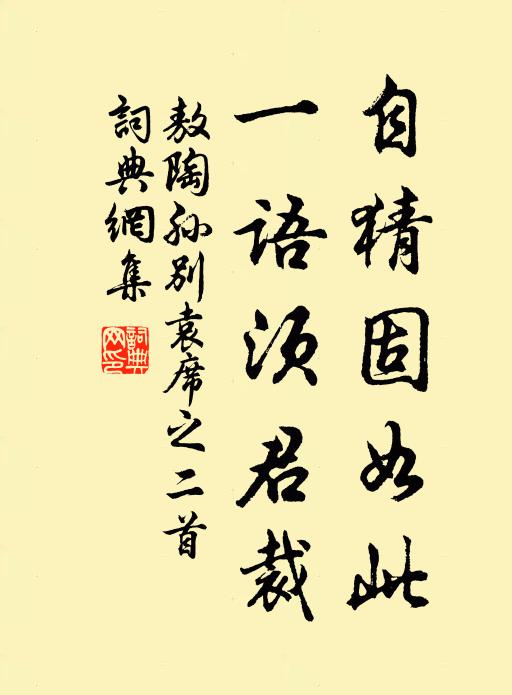 自猜固如此
一語須君裁
敖陶孙別袁席之二首
詞典網集
詞典
网印